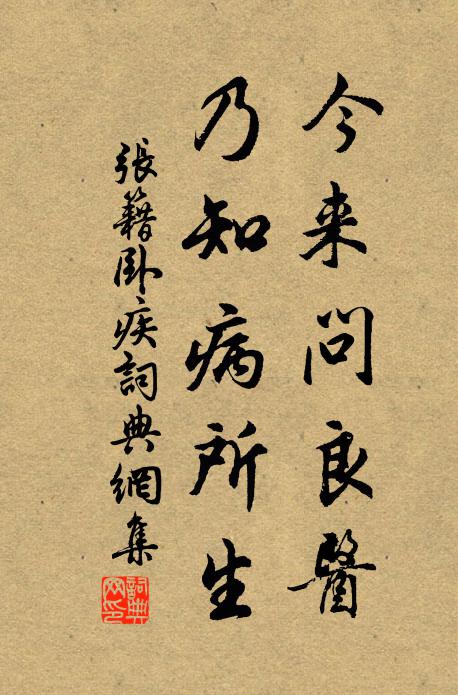 今来問良醫
乃知病所生
張籍卧疾詞典網集
詞典网印